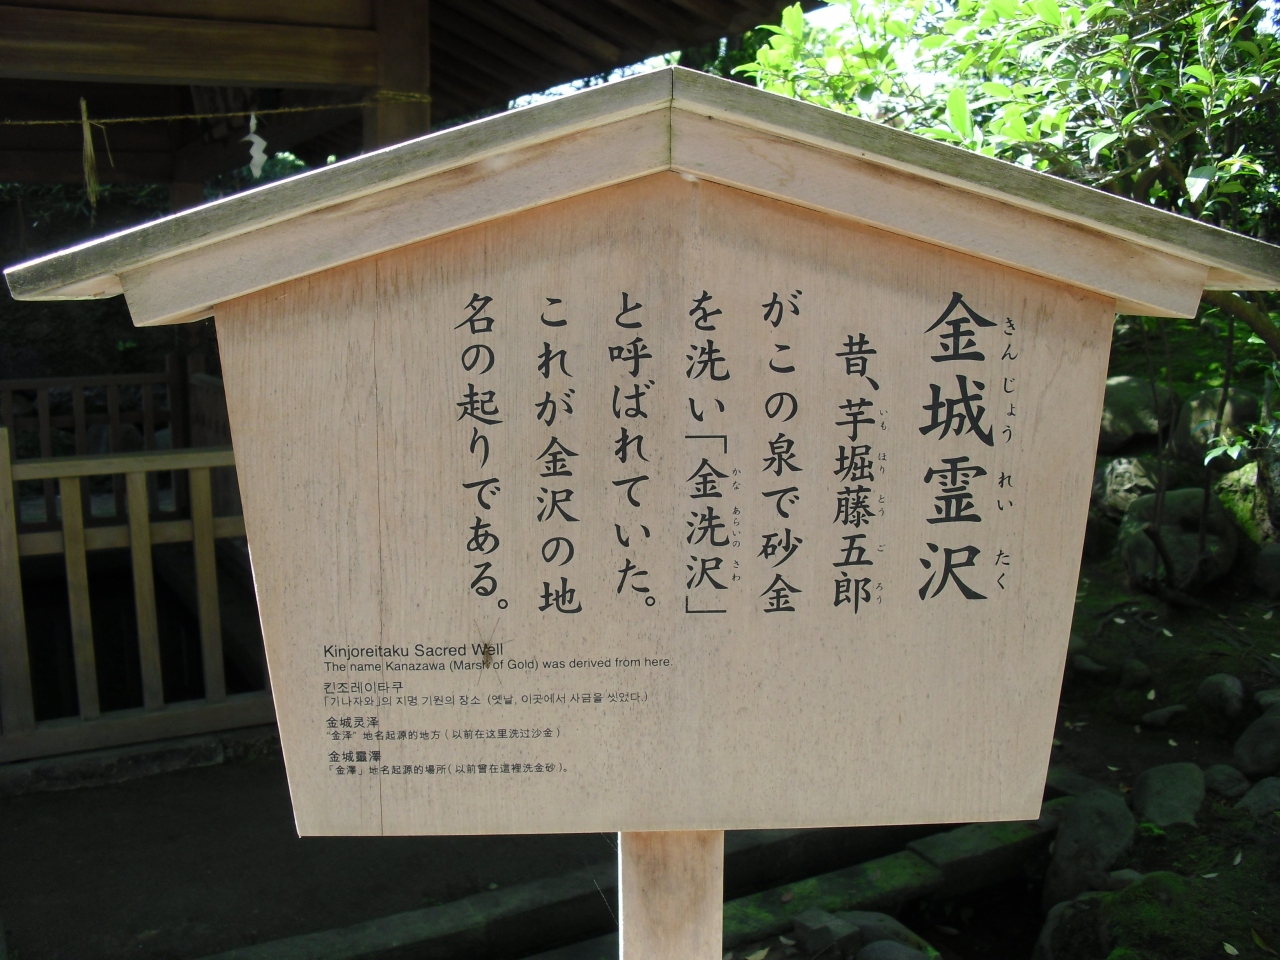 金城霊沢
きんじょうれいたく
昔、芋堀藤五郎
いもほりとうごろう
がこの泉で砂金
を洗い「金洗沢」
かなあらいのさわ
と呼ばれていた。
これが金沢の地
名の起りである。
Kinjoreitaku Sacred Well
The name Kanazawa (Marsh of Gold) was derived from here.
킨조레이타쿠
「기나자와」의 지명 기원의 장소 (옛날, 이곳에서 사금을 씻었다.)
金城灵泽
“金泽” 地名起源的地方（以前在这里洗过沙金）
金城靈澤
「金澤」地名起源的場所（以前曾在這裡洗金砂）。